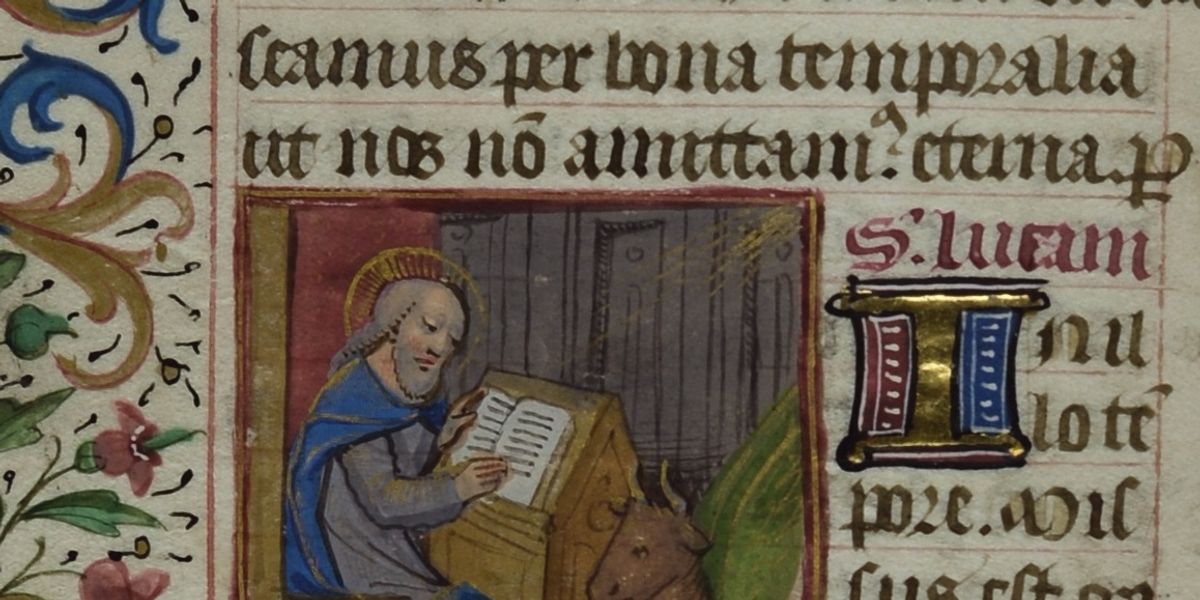 scamus per bona temporalia
ut nos nō amittam9. eterna. p
S. lucam
In il
lo tē
pore. Mis
sus est an